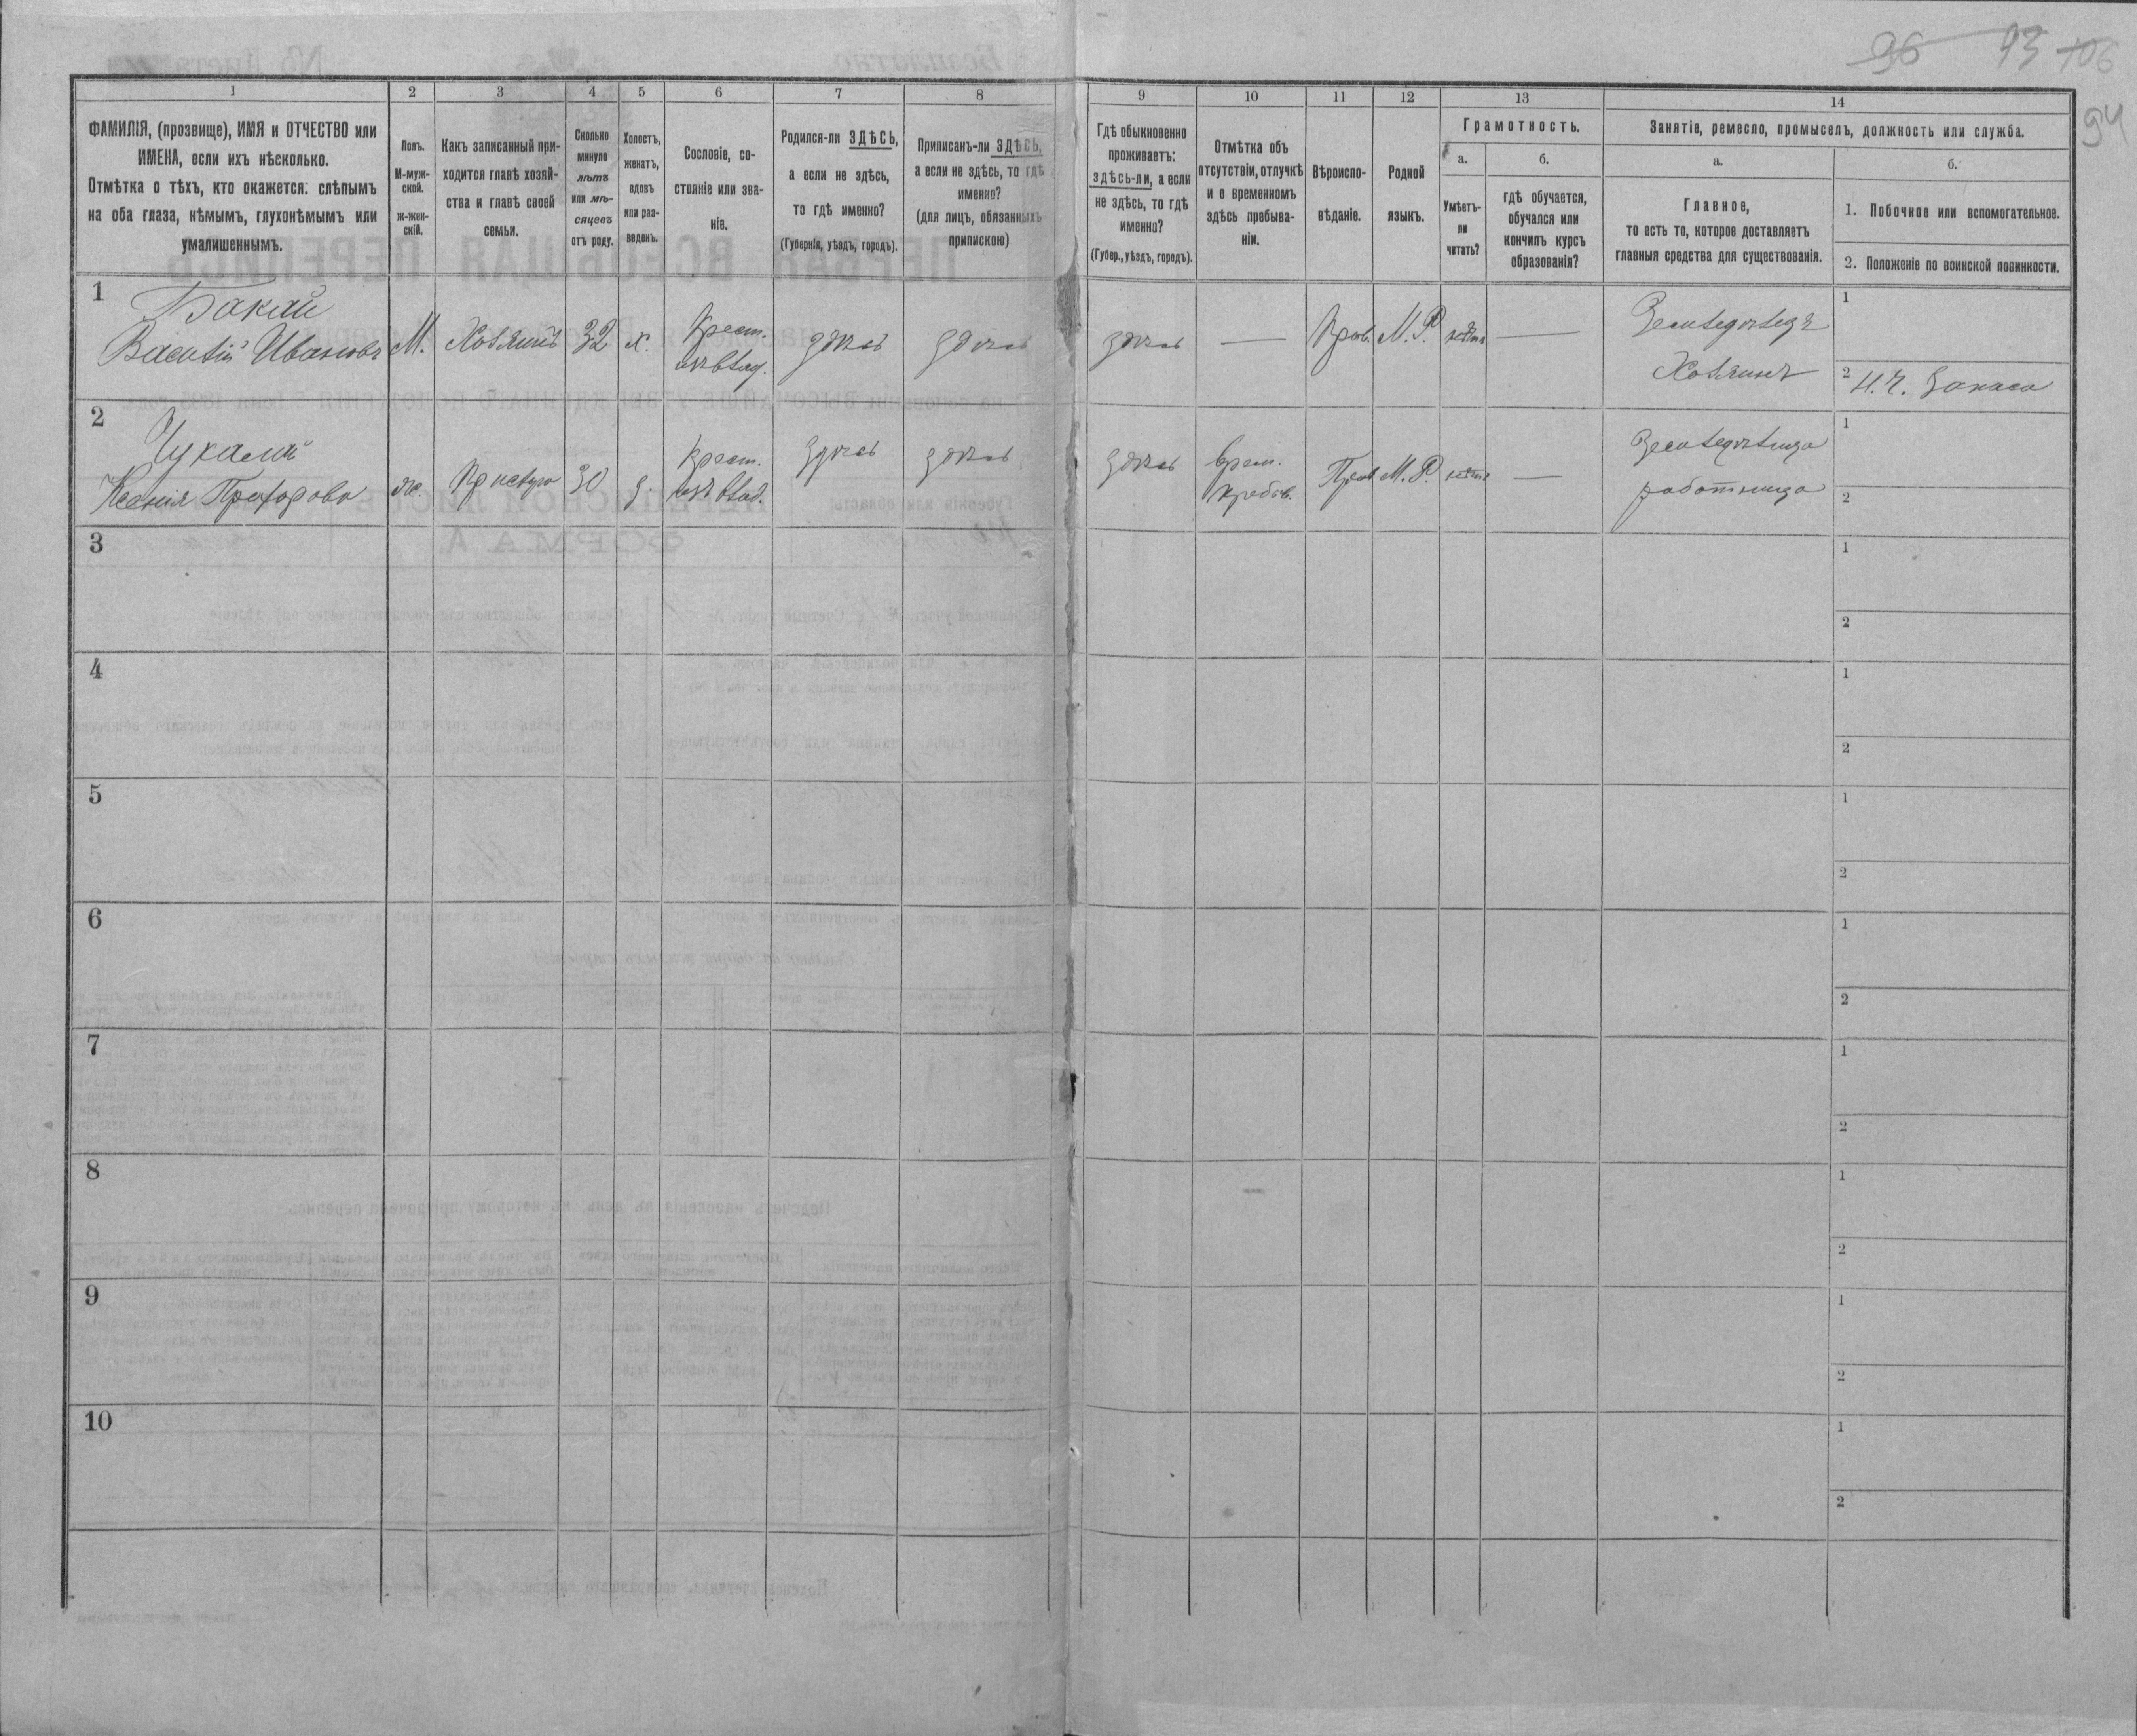 96 93 106
94
1
2
3
4
5
6
7
8
9
10
11
12
13
14
ФАМИЛІЯ, (прозвище), ИМЯ и ОТЧЕСТВО или
ИМЕНА, если ихъ нѣсколько.
Отмѣтка о тѣхъ, кто окажется: слѣпымъ
на оба глаза, нѣмымъ, глухонѣмымъ или
умалишеннымъ.
Полъ.
М-муж-
ской.
ж-жен-
скій.
Какъ записанный при-
ходится главѣ хозяй-
ства и главѣ своей
семьи.
Сколько
минуло
лѣтъ
или мѣ-
сяцевъ
отъ роду.
Холостъ,
женатъ,
вдовъ
или раз-
веденъ.
Сословіе, со-
стояніе или зва-
ніе.
Родился-ли ЗДѢСЬ,
а если не здѣсь,
то гдѣ именно?
(Губернія, уѣздъ, городъ).
Приписанъ-ли ЗДѢСЬ,
а если не здѣсь, то гдѣ
именно?
(для лицъ, обязанныхъ
припискою)
Гдѣ обыкновенно
проживаетъ:
здѣсь-ли, а если
не здѣсь, то гдѣ
именно?
(Губер., уѣздъ, городъ).
Отмѣтка объ
отсутствіи, отлучкѣ
и о временномъ
здѣсь пребыва-
ніи.
Вѣроиспо-
вѣданіе.
Родной
языкъ.
Грамотность.
а.
Умѣетъ-
ли
читать?
б.
гдѣ обучается,
обучался или
кончилъ курсъ
образованія?
Занятіе, ремесло, промыселъ, должность или служба.
а.
Главное,
то есть то, которое доставляетъ
главныя средства для существованія.
б.
1. Побочное или вспомогательное.
2. Положеніе по воинской повинности.
1
Бакай
Василій Ивановъ
М.
Хозяинъ
32
х.
Крест.
изъ влад.
здѣсь
здѣсь
здѣсь
—
Прав.
М. Р.
нѣтъ
—
Земледѣлецъ
Хозяинъ
1
2 Н. Ч. Запаса
2
Чукалий
Ксенія Прохорова
ж.
Прислуга
30
д.
Крест.
изъ влад.
здѣсь
здѣсь
здѣсь
врем.
пребыв.
Прав
М. Р.
нѣтъ
—
Земледѣлица
работница
1
2
3
1
2
4
1
2
5
1
2
6
1
2
7
1
2
8
1
2
9
1
2
10
1
2